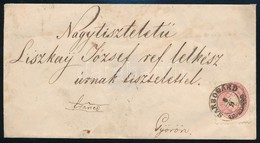 Nagytiszteletű
Liszkay József ref. lelkész
úrnak tisztelettel.
Győrön
SÁRBOGÁRD